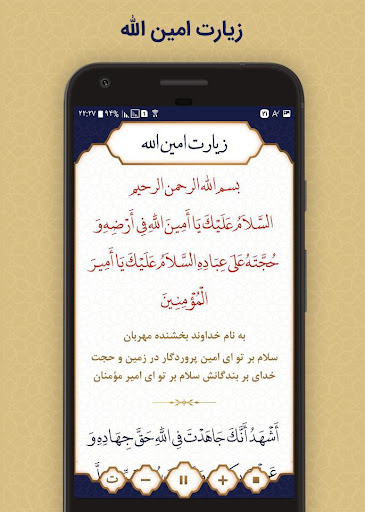 زیارت امین الله
۲۲:۲۷ ۹۴%
زیارت امین الله
بسم الله الرحمن الرحیم
السَّلَامُ عَلَيْكَ يَا أَمِينَ اللَّهِ فِي أَرْضِهِ وَ
حُجَّتَهُ عَلَى عِبَادِهِ السَّلَامُ عَلَيْكَ يَا أَمِيرَ
الْمُؤْمِنِينَ
به نام خداوند بخشنده مهربان
سلام بر تو ای امین پروردگار در زمین و حجت
خدای بر بندگانش سلام بر تو ای امیر مؤمنان
أَشْهَدُ أَنَّكَ جَاهَدْتَ فِي اللَّهِ حَقَّ جِهَادِهِ وَ
ت